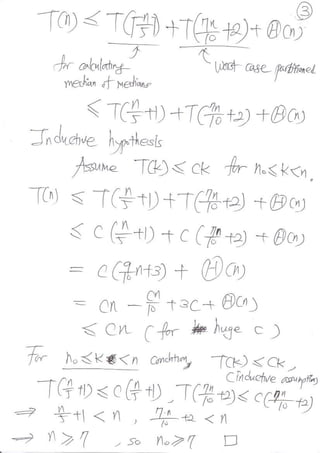 ③
T(n) ≤ T(⌈n/5⌉) + T(7n/10 +2) + Θ(n)
for calculating median of medians
worst case partitioned
≤ T(n/5 +1) + T(7n/10 +2) + Θ(n)
Inductive hypothesis
Assume T(k) ≤ ck for n₀≤k<n.
T(n) ≤ T(n/5 +1) + T(7n/10 +2) + Θ(n)
≤ c(n/5 +1) + c(7n/10 +2) + Θ(n)
= c(9/10 n+3) + Θ(n)
= cn - cn/10 + 3c + Θ(n)
≤ cn (for huge c)
For n₀≤k<n condition, T(k) ≤ ck,
(inductive assumption)
T(n/5 +1) ≤ c(n/5 +1), T(7n/10 +2) ≤ c(7n/10 +2)
⇒ n/5 +1 < n, 7n/10 +2 < n
→ n ≥ 7, so n₀ ≥ 7 □